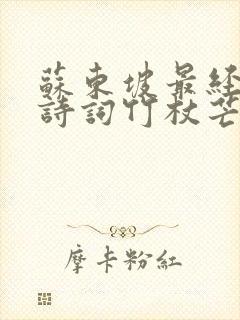 蘇東坡最经
詩詞竹杖芒
摩卡粉紅